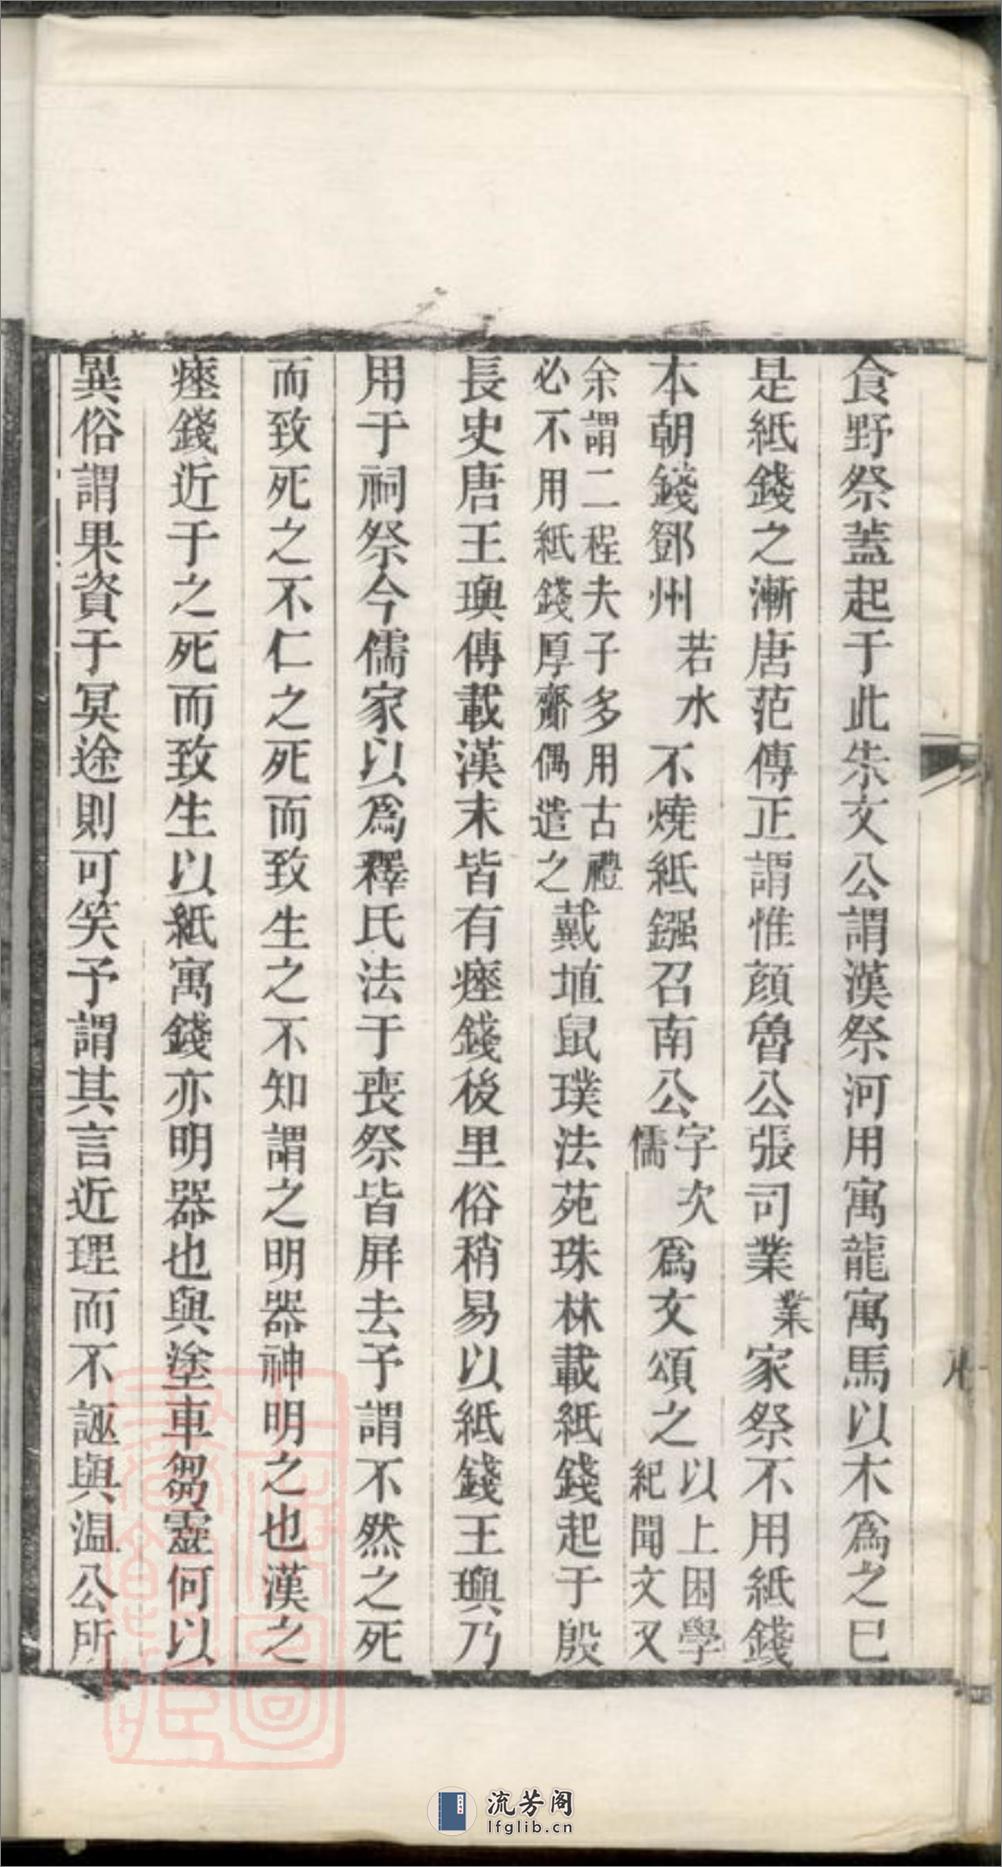 食野祭蓋起于此朱文公謂漢祭河用寓龍寓馬以木爲之已
是紙錢之漸唐范傳正謂惟顔魯公張司業業家祭不用紙錢
本朝錢鄧州若水不燒紙鏹召南公字次儒爲文頌之以上困學紀聞文又
余謂二程夫子多用古禮必不用紙錢厚齋偶遺之戴埴鼠璞法苑珠林載紙錢起于殷
長史唐王璵傳載漢末皆有瘞錢後里俗稍易以紙錢王璵乃
用于祠祭今儒家以爲釋氏法于喪祭皆屏去予謂不然之死
而致死之不仁之死而致生之不知謂之明器神明之也漢之
瘞錢近于之死而致生以紙寓錢亦明器也與塗車芻靈何以
異俗謂果資于冥途則可笑予謂其言近理而不誣與温公所
流芳阁
lfglib.cn